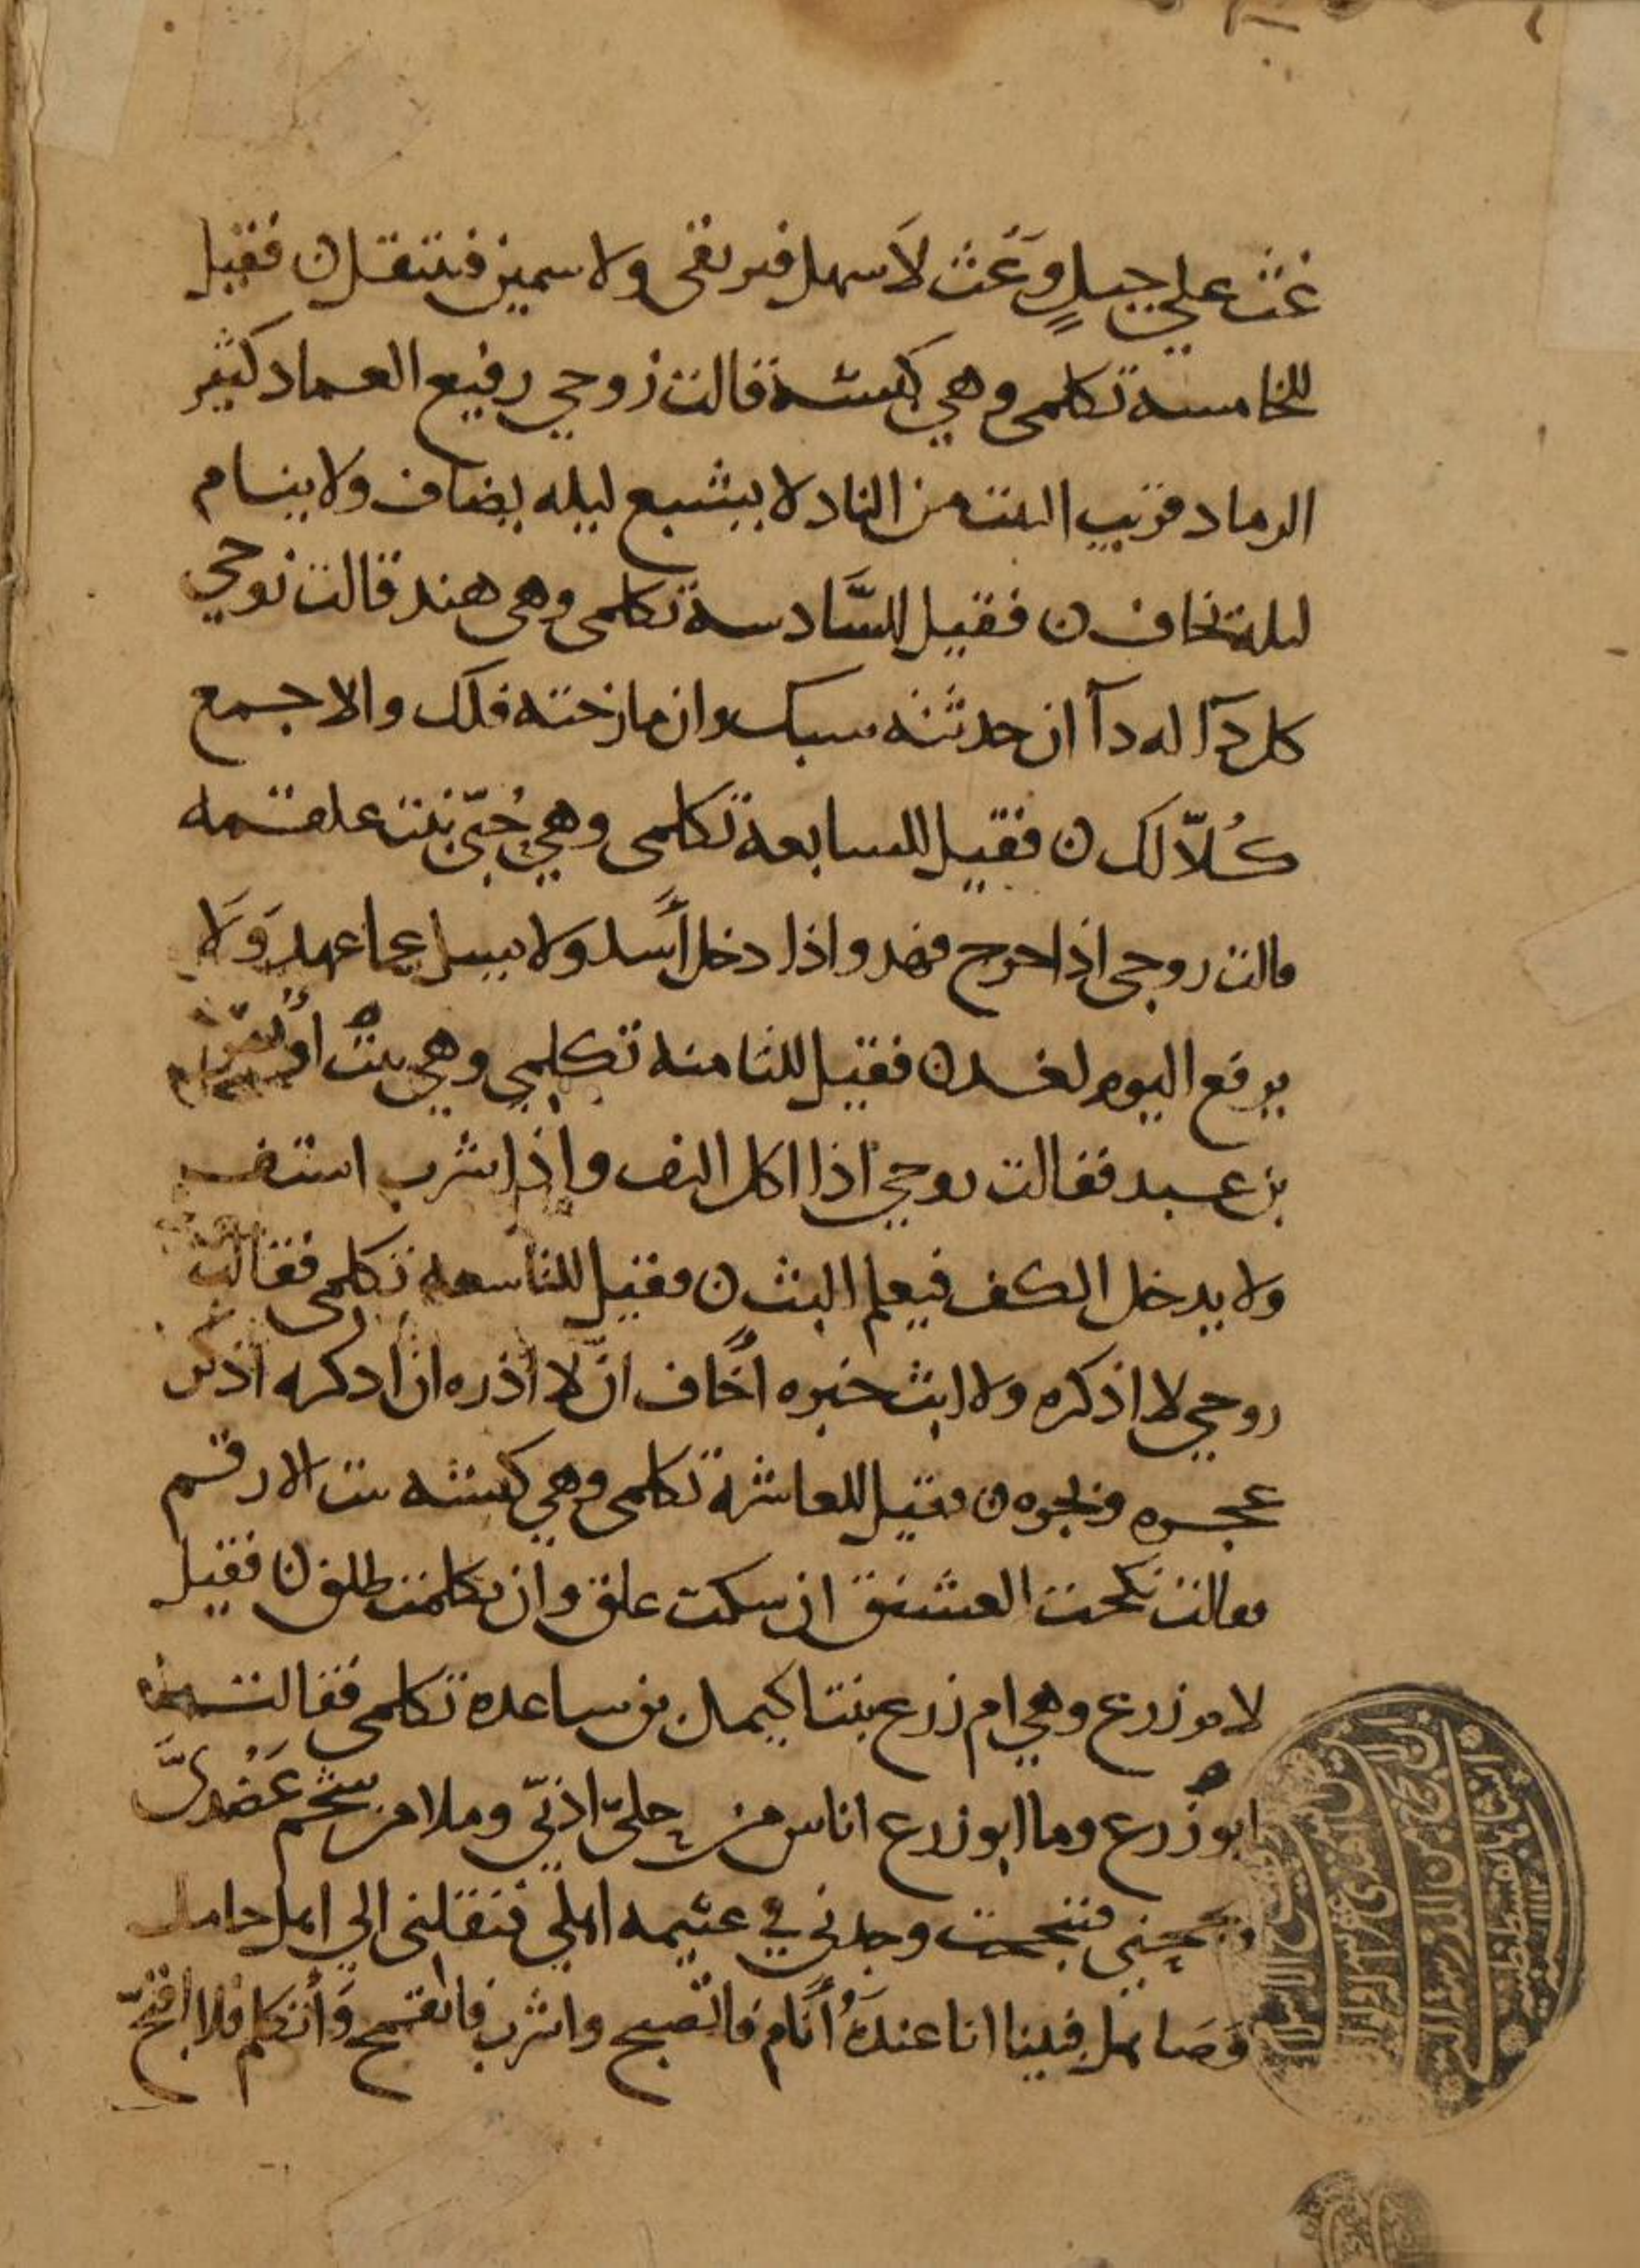 غث على جبلٍ وَعَث لَا سهل فيرتقى ولا سمين فينتقل ن فقيل
للخامسة تكلمى وهي كبشة قالت زوجي رفيع العماد كثير
الرماد قريب البيت من الناد لا يشبع ليله يضاف ولا ينام
ليلة يخاف ن فقيل للسَّادسة تكلمى وهى هند قالت زوجي
كل دآ له دآ ان حدثته سبك وان مازحته فلك والا جمع
كُلّا لك ن فقيل للسابعة تكلمى وهي حُبّى بنت علقمه
قالت زوجى اذا خرج فهد واذا دخل أَسد ولا يسل عما عهد وَلَا
يرفع اليوم لغد ن فقيل للثامنه تكلمي وهي بنت اوس
بن عبد فقالت زوجي اذا اكل التف واذا شرب اشتف
ولا يدخل الكف فيعلم البث ن فقيل للتاسعه تكلمى فقالت
زوجي لا اذكره ولا ابث خبره اخَاف ان لا اذره ان اذكره اذكر
عجره وبجره ن فقيل للعاشرة تكلمى وهي كبشه بنت الارقم
فقالت نكحت العشنق ان سكت علق وان تكلمت طلق ن فقيل
لام زرع وهي ام زرع بنت اكيمل بن ساعده تكلمى فقالت
ابو زرع وما ابو زرع اناس من حليّ اذنيّ وملا من شحم عَضُدىَّ
وبجحني فبجحت وجدني في غنيمه اهلي فنقلنى الي اهل جامل
وَصَاهل فبينا انا عندَهُ أَنَام فاتصبح واشرب فاتقمح وَأتكلم فلا اقبَّح